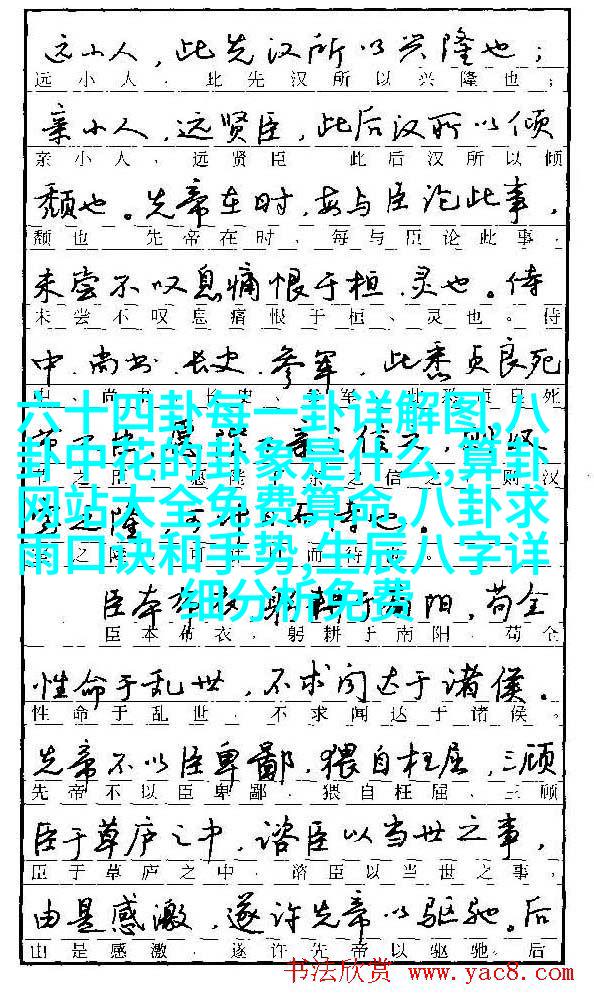 远小人，此先汉所以兴隆也；
远小人，此先汉所以兴隆也；
亲小人，远贤臣，此后汉所以倾
亲小人，远贤臣 此后汉所以倾
颓也。先帝在时，每与臣论此事，
颓也 先帝在时，每与臣论此事，
未尝不叹息痛恨于桓、灵也。侍
未尝不叹息痛恨于桓、灵也。侍
中、尚书、长史、参军，此悉贞良死
六十四卦每一卦详解图,八
卦中花的卦象是什么,算卦
网站大全免费算命,八卦求
雨口诀和手势,生辰八字详
细分析免费
臣本布衣，躬耕于南阳，苟全
臣本布衣，躬耕于南阳，苟全
性命于乱世，不求闻达于诸侯。
性命于乱世，不求闻达于诸侯。
先帝不以臣卑鄙，猥自枉屈，三顾
先帝不以臣卑鄙，猥自枉屈、三顾
臣于草庐之中，谘臣以当世之事，
臣于草庐之中，谘臣以当世之事，
由是感激，遂许先帝以驱驰。后
由是感激，遂许先帝以驱驰。后
书法欣赏 www.yac8.com